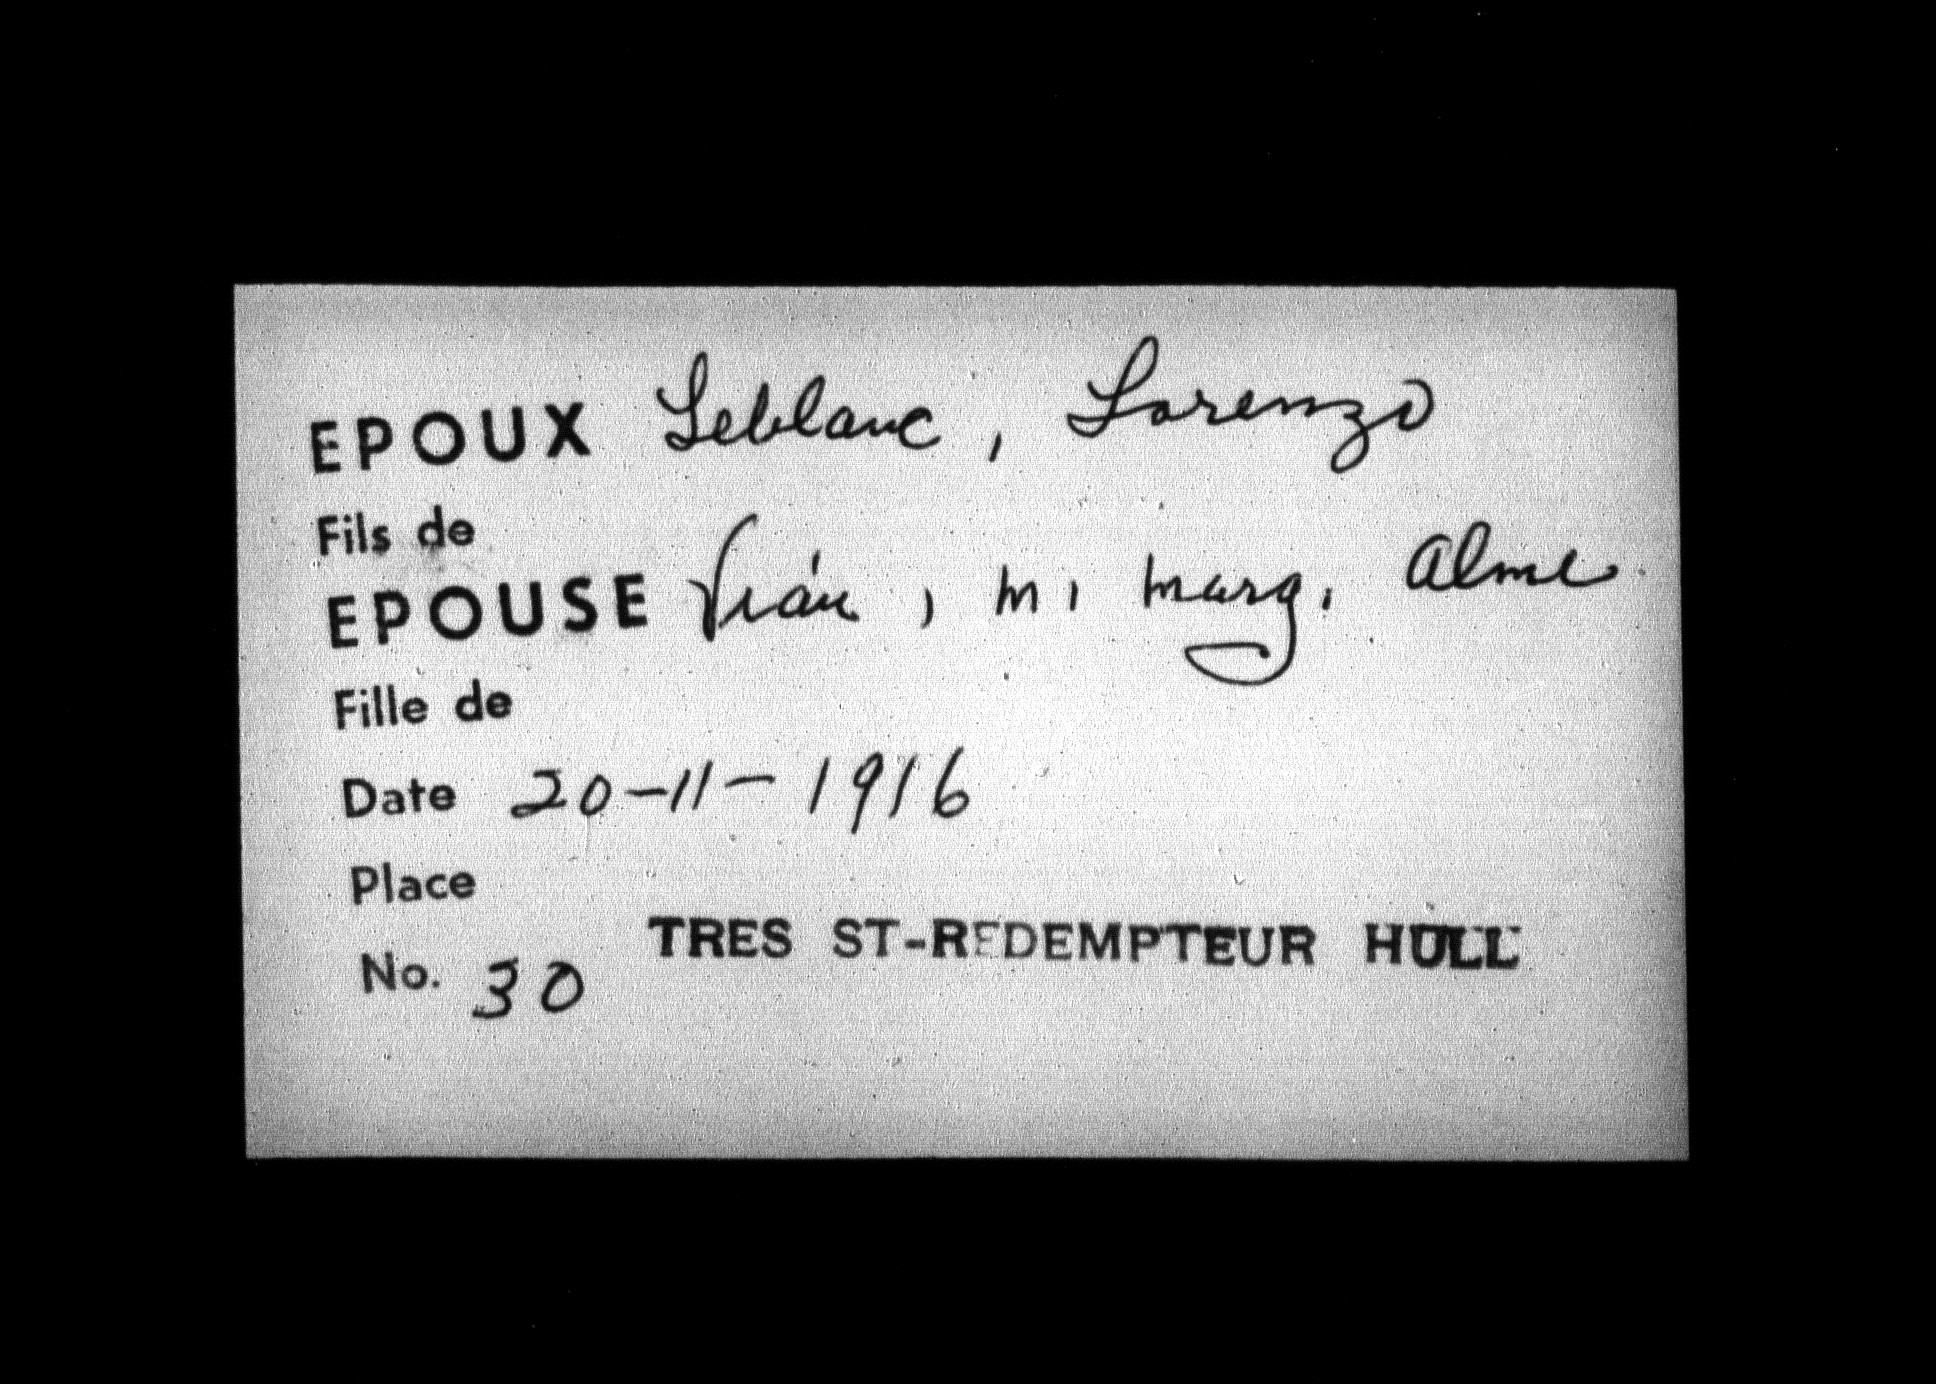 EPOUX Leblanc, Lorenzo
Fils de
EPOUSE Viau, M. Marg. Alme
Fille de
Date 20-11-1916
Place
TRES ST-REDEMPTEUR HULL
No. 30